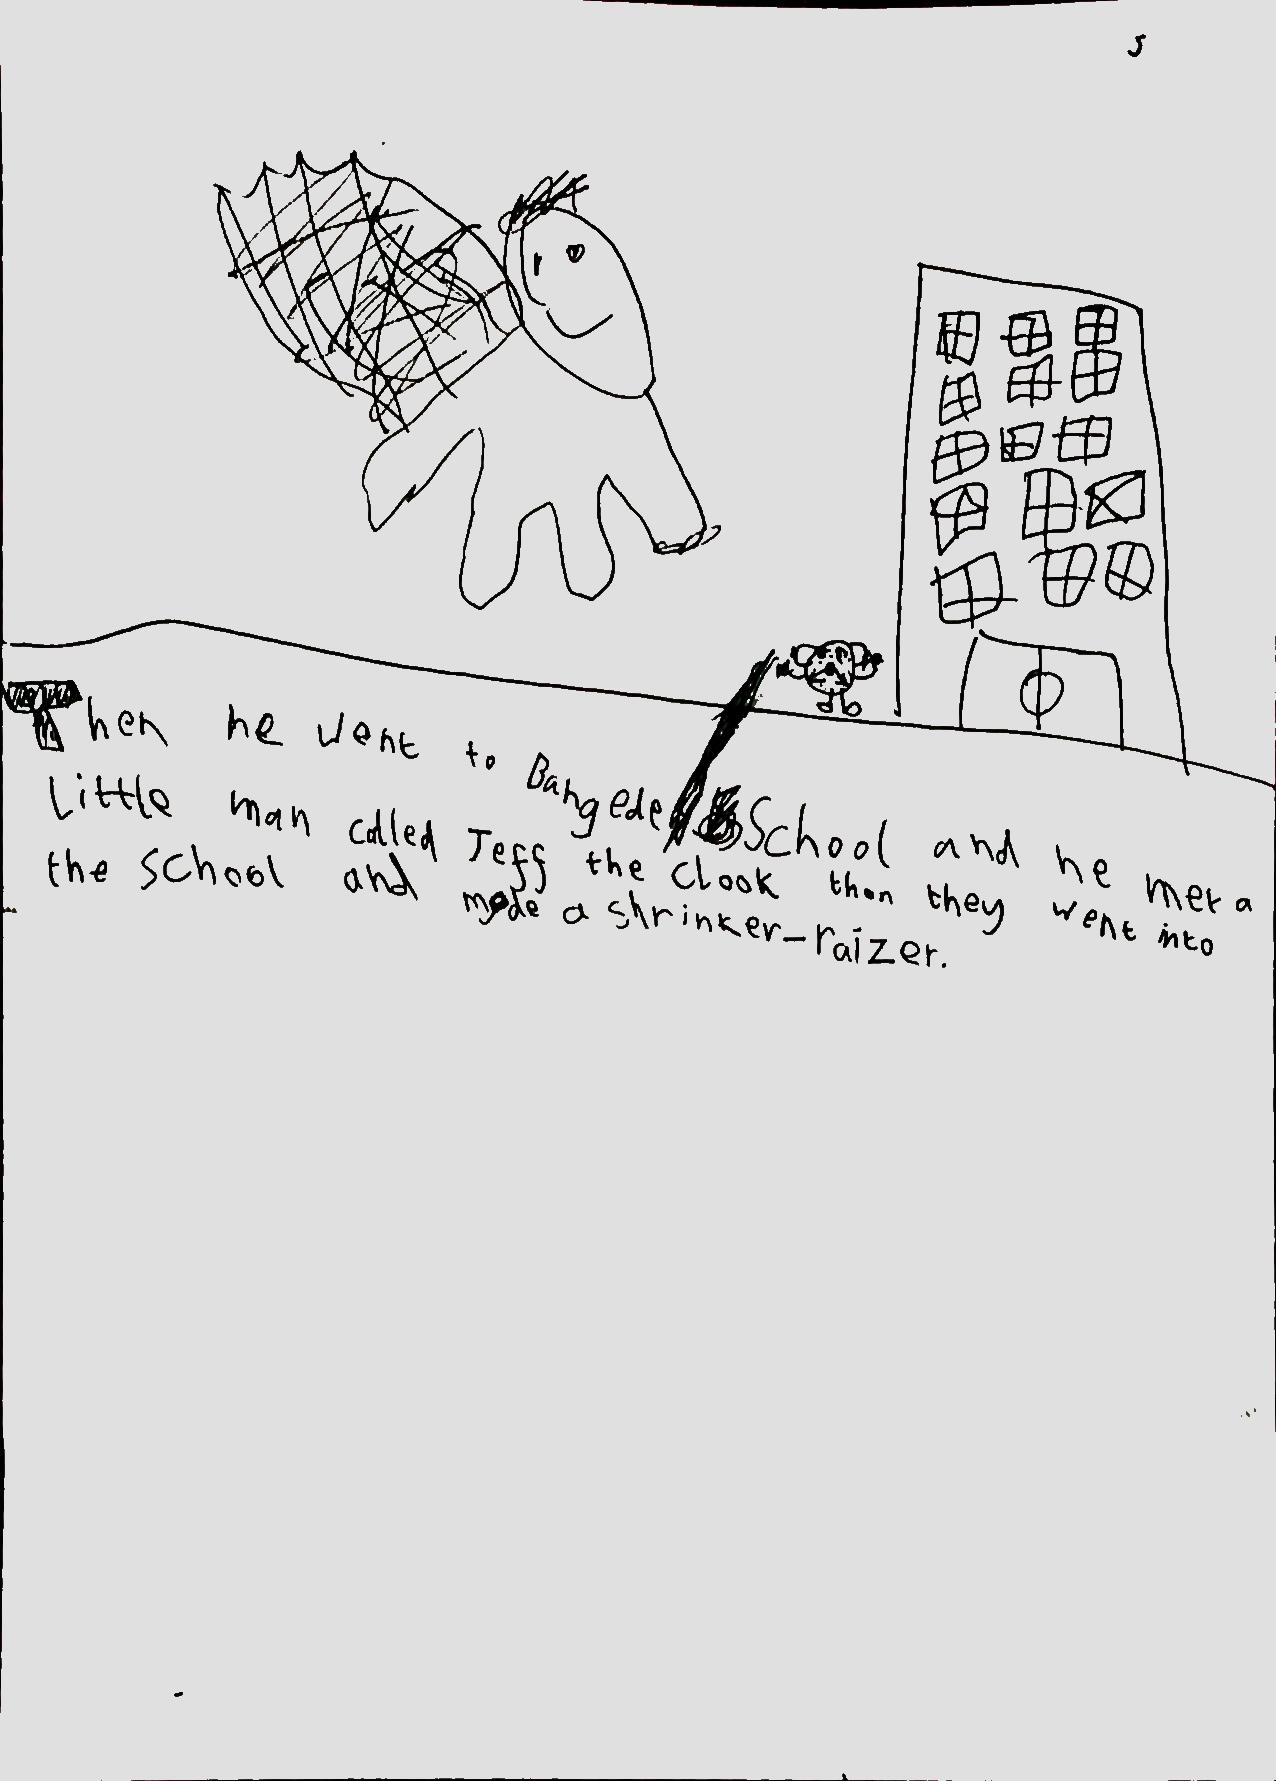 5
Then he went to Bangede School and he met a
Little man called Jeff the clook then they went into
the school and made a shrinker-raizer.